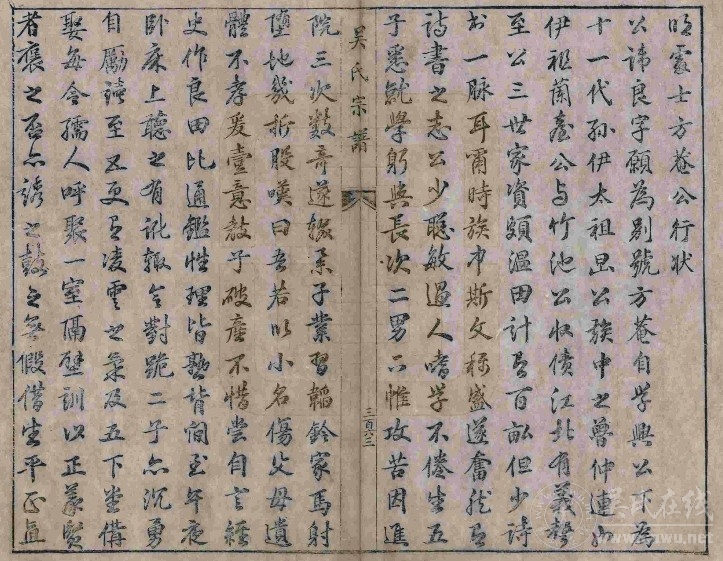 明處士方菴公行状
公諱良字願為別號方菴自学典公下為
十一代孫伊太祖昆公族中之魯仲連
伊祖蘭臺公与竹池公收债江北有義聲
至公三世家资頗温田計百畝但少詩
書一脉耳甯時族中斯文称盛遂奮然有
詩書之志公少聪敏過人嗜学不倦生五
子悉就学躬與長次二男下帷攻苦因進
吴氏宗譜
三百六三
院三次数奇遂辍子業習韜鈐家馬射
墮地幾折股嘆曰吾若以小名傷父母遺
體不孝爰壹意教子破產不惜尝自言經
史作良田比通鑑性理皆熟背间至年夜
卧床上聽之有訛輙令對跪二子亦沉勇
自勵讀至五更有凌雲之氣及五下堂備
娶每令孺人呼聚一室隔壁訓以正義賢
者褒之亦誘之鼓之無假借生平正直
吴氏在线